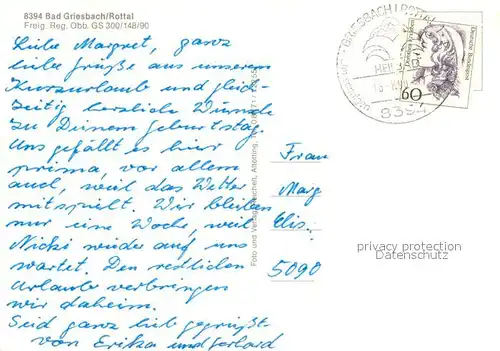 8394 Bad Griesbach/Rottal
Freig. Reg. Obb. GS 300/148/90
Liebe Margret, ganz
liebe Grüße aus unserem
Kurzurlaub und gleich-
zeitig herzliche Wünsche
zu Deinem Geburtstag.
Uns gefällt es hier
prima, vor allem
auch, weil das Wetter
mitspielt. Wir bleiben
nur eine Woche, weil
Nicki wieder auf uns
wartet. Den restlichen
Urlaub verbringen
wir daheim.
Seid ganz lieb gegrüßt
von Erika und Gerhard
Foto und Verlag
Altötting, Tel.
GRIESBACH I ROTTAL
8394
Deutsche Bundespost
60
Frau
Marg
Elis.
5090
privacy protection
Datenschutz